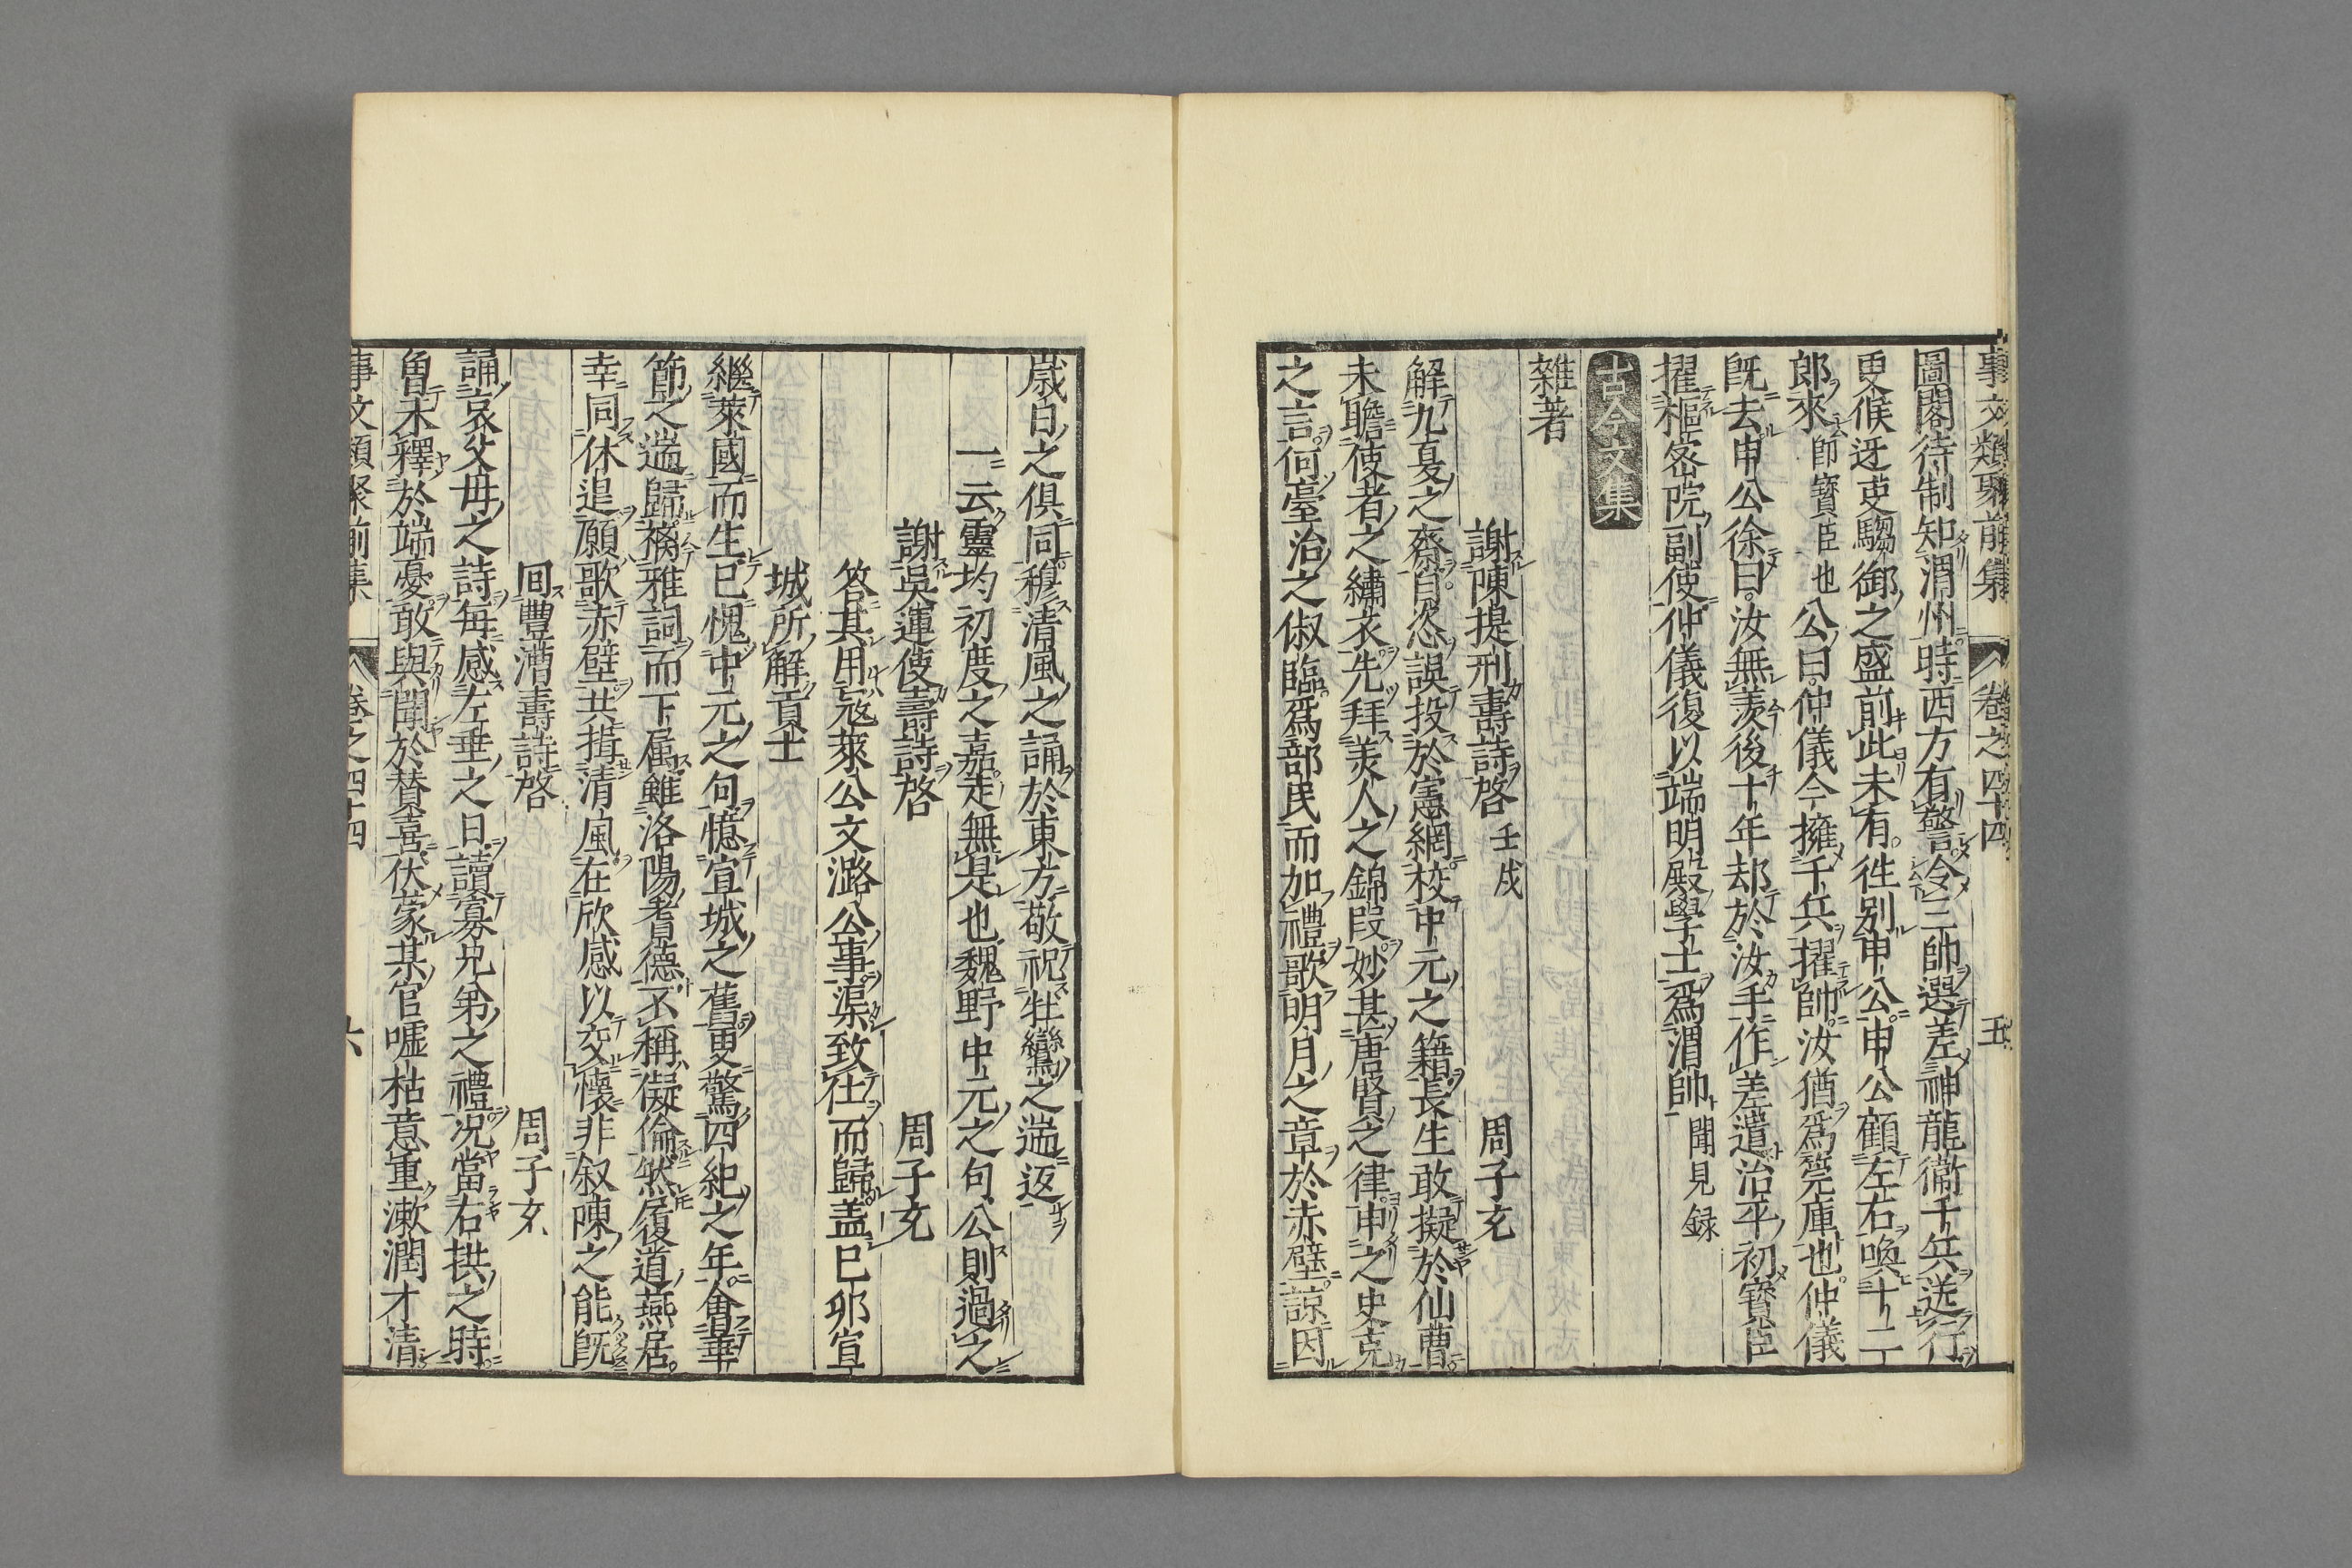 事文類聚前集 卷之四十四 五
圖閣待制知渭州時西方有警令三帥選差神龍衞千兵送行
更候迓吏騶御之盛前此未有徃别申公申公顧左右喚十二
郎來 師寶臣也 公曰仲儀今擁千兵擢帥汝猶爲筦庫也仲儀
旣去申公徐曰汝無羨後十年却於汝手作差遣治平初寶臣
擢樞密院副使仲儀復以端明殿學士爲渭帥 聞見録
古今文集
雜著
謝陳提刑壽詩啓 壬戌 周子充
解九夏之齋自恣誤投於憲網校中元之籍長生敢擬於仙曹
未瞻使者之繡衣先拜美人之錦段妙甚唐賢之律申之史克
之言何臺治之俶臨爲部民而加禮歌明月之章於赤壁諒因
歲日之俱同穆清風之誦於東方敬祝牡鸞之遄返
一云靈均初度之嘉走無是也魏野中元之句公則過之
謝吳運使壽詩啓 周子充
答其用寇萊公文潞公事渠致仕而歸盖巳卯宣
城所解貢士
繼萊國而生巳愧中元之句憶宣城之舊更驚四紀之年會華
節之遄歸穐雅詞而下屬雖洛陽耆德不稱儗倫然履道燕居
幸同休退願歌赤壁共揖清風在欣感以交懷非叙陳之能旣
回豐漕壽詩啓 周子充
誦哀父母之詩每感左垂之日讀寡兄弟之禮况當右拱之時
魯未釋於端憂敢與聞於賛喜伏蒙某官噓枯意重漱潤才清
事文類聚前集 卷之四十四 六